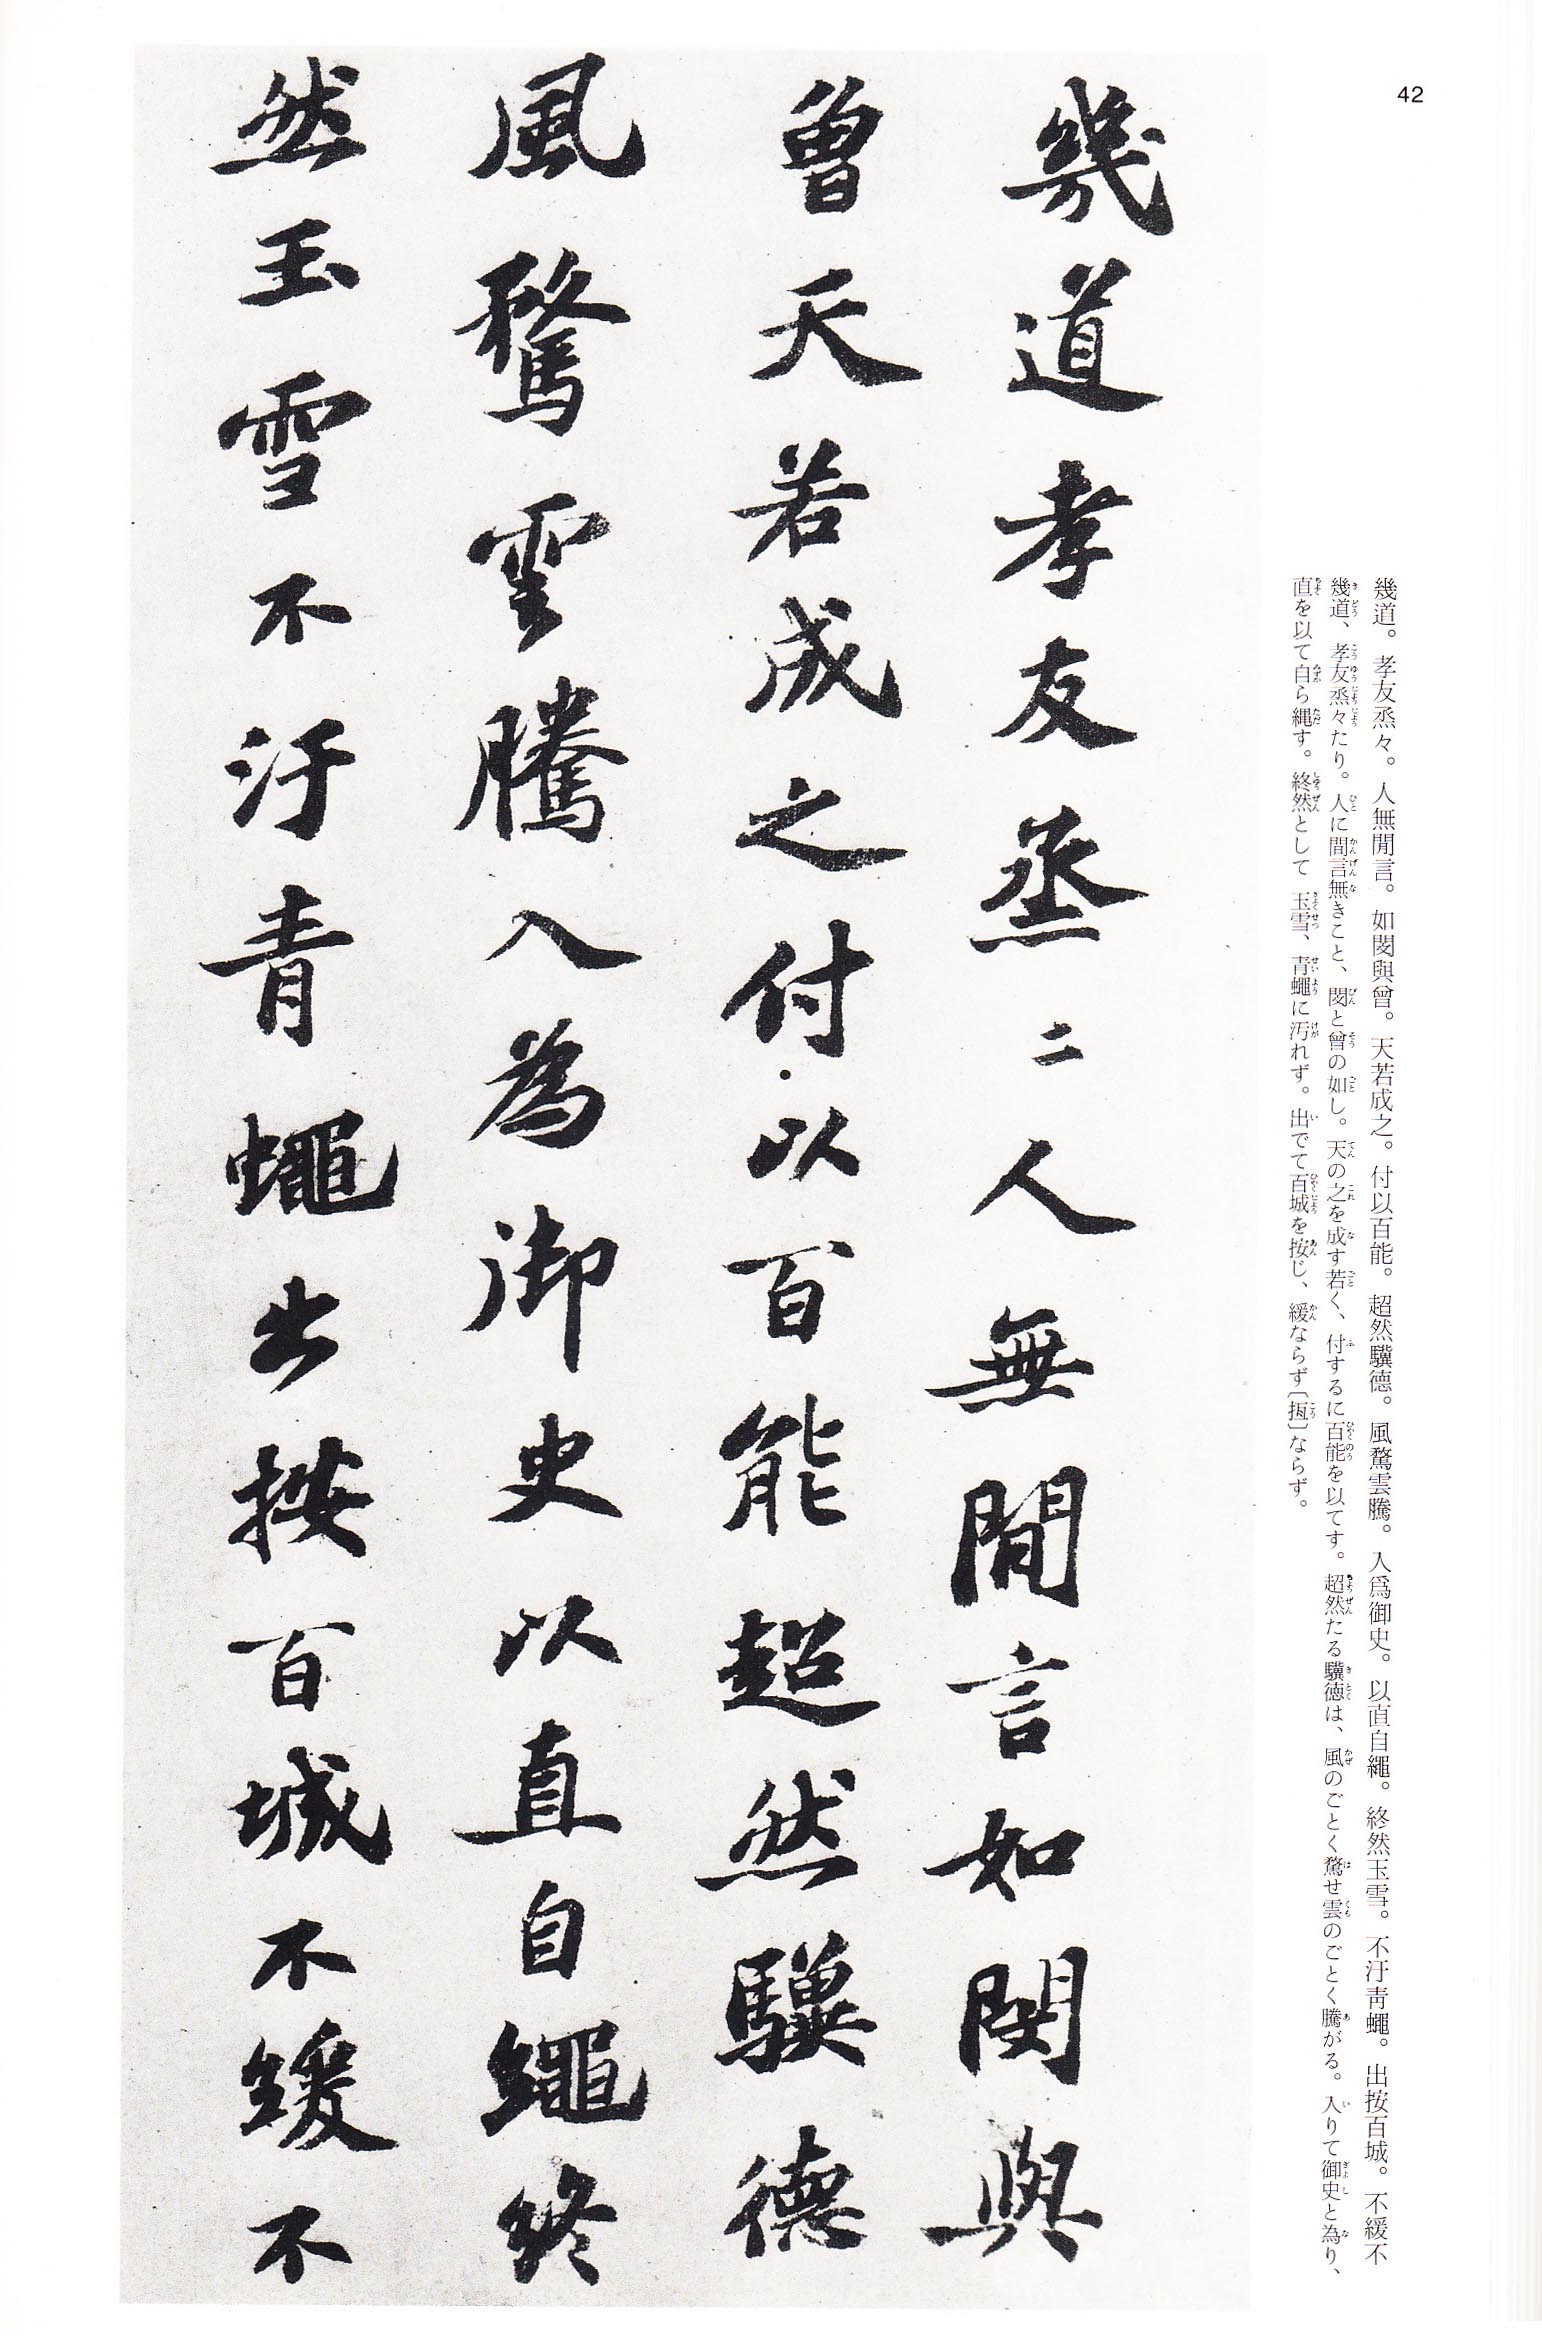 42
幾道。孝友烝々。人無閒言。如閔與曾。天若成之。付以百能。超然驥德。風騖雲騰。入爲御史。以直自繩。終然玉雪。不汙青蠅。出按百城。不緩不
幾道、孝友烝々たり。人に間言無きこと、閔と曾の如し。天の之を成す若く、付するに百能を以てす。超然たる驥徳は、風のごとく騖せ雲のごとく騰がる。入りて御史と為り、
直を以て自ら縄す。終然として玉雪、青蠅に汚れず。出でて百城を按じ、緩ならず〔搄〕ならず。
幾道孝友烝〻人無閒言如閔與
曾天若成之付以百能超然驥德
風騖雲騰入為御史以直自繩終
然玉雪不汙青蠅出按百城不緩不